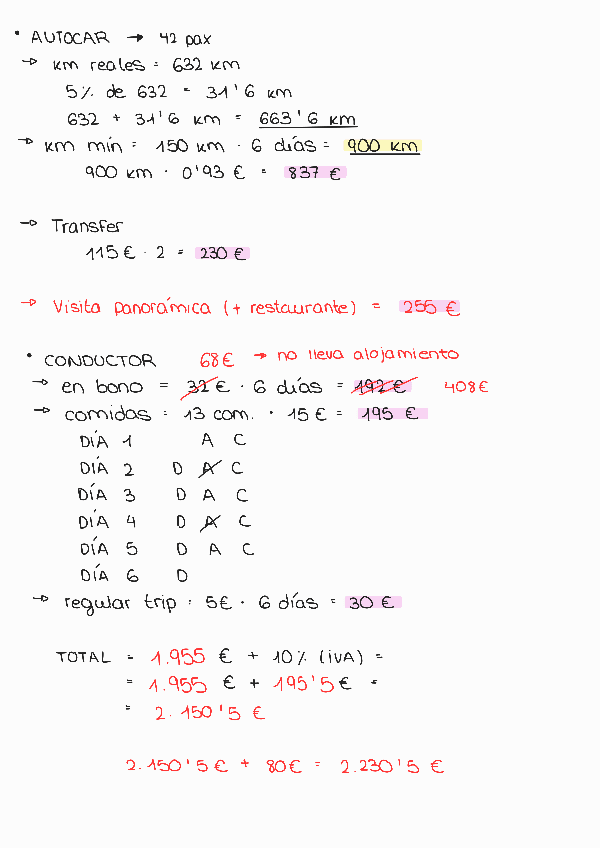 • AUTOCAR → 42 pax
→ km reales = 632 km
5% de 632 = 31'6 km
632 + 31'6 km = 663'6 km
→ km mín = 150 km · 6 días = 900 km
900 km · 0'93 € = 837 €
→ Transfer
115 € · 2 = 230 €
→ Visita panorámica (+ restaurante) = 255 €
• CONDUCTOR 68€ → no lleva alojamiento
→ en bono = 32 € · 6 días = 192 € 408€
→ comidas = 13 com. · 15 € = 195 €
DÍA 1 A C
DÍA 2 D A C
DÍA 3 D A C
DÍA 4 D A C
DÍA 5 D A C
DÍA 6 D
→ regular trip = 5€ · 6 días = 30 €
TOTAL = 1.955 € + 10% (iVA) =
= 1.955 € + 195'5 € =
= 2.150'5 €
2.150'5 € + 80€ = 2.230'5 €